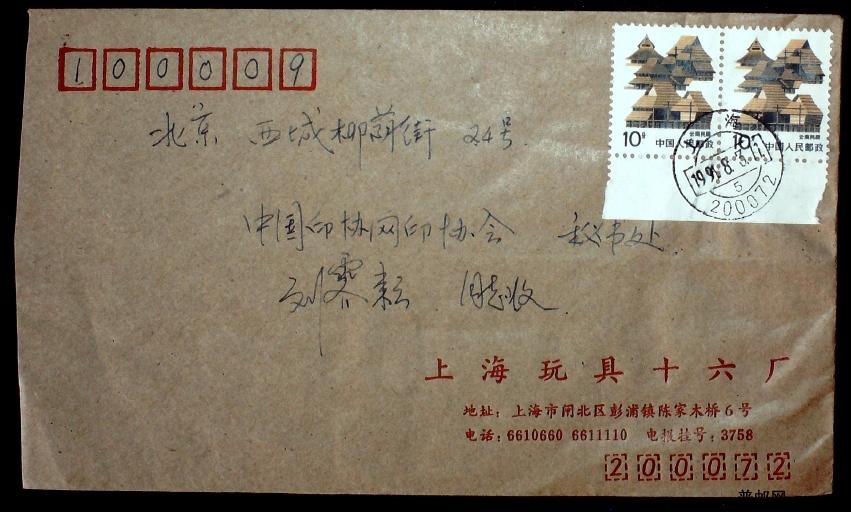 100009
云南民居 云南民居
10分 中国人民邮政 10分 中国人民邮政
上海
8
5
200072
北京 西城柳荫街 24号
中国印协网印协会 秘书处
刘 同志收
上海玩具十六厂
地址：上海市闸北区彭浦镇陈家木桥6号
电话：6610660 6611110 电报挂号：3758
200072
普邮网